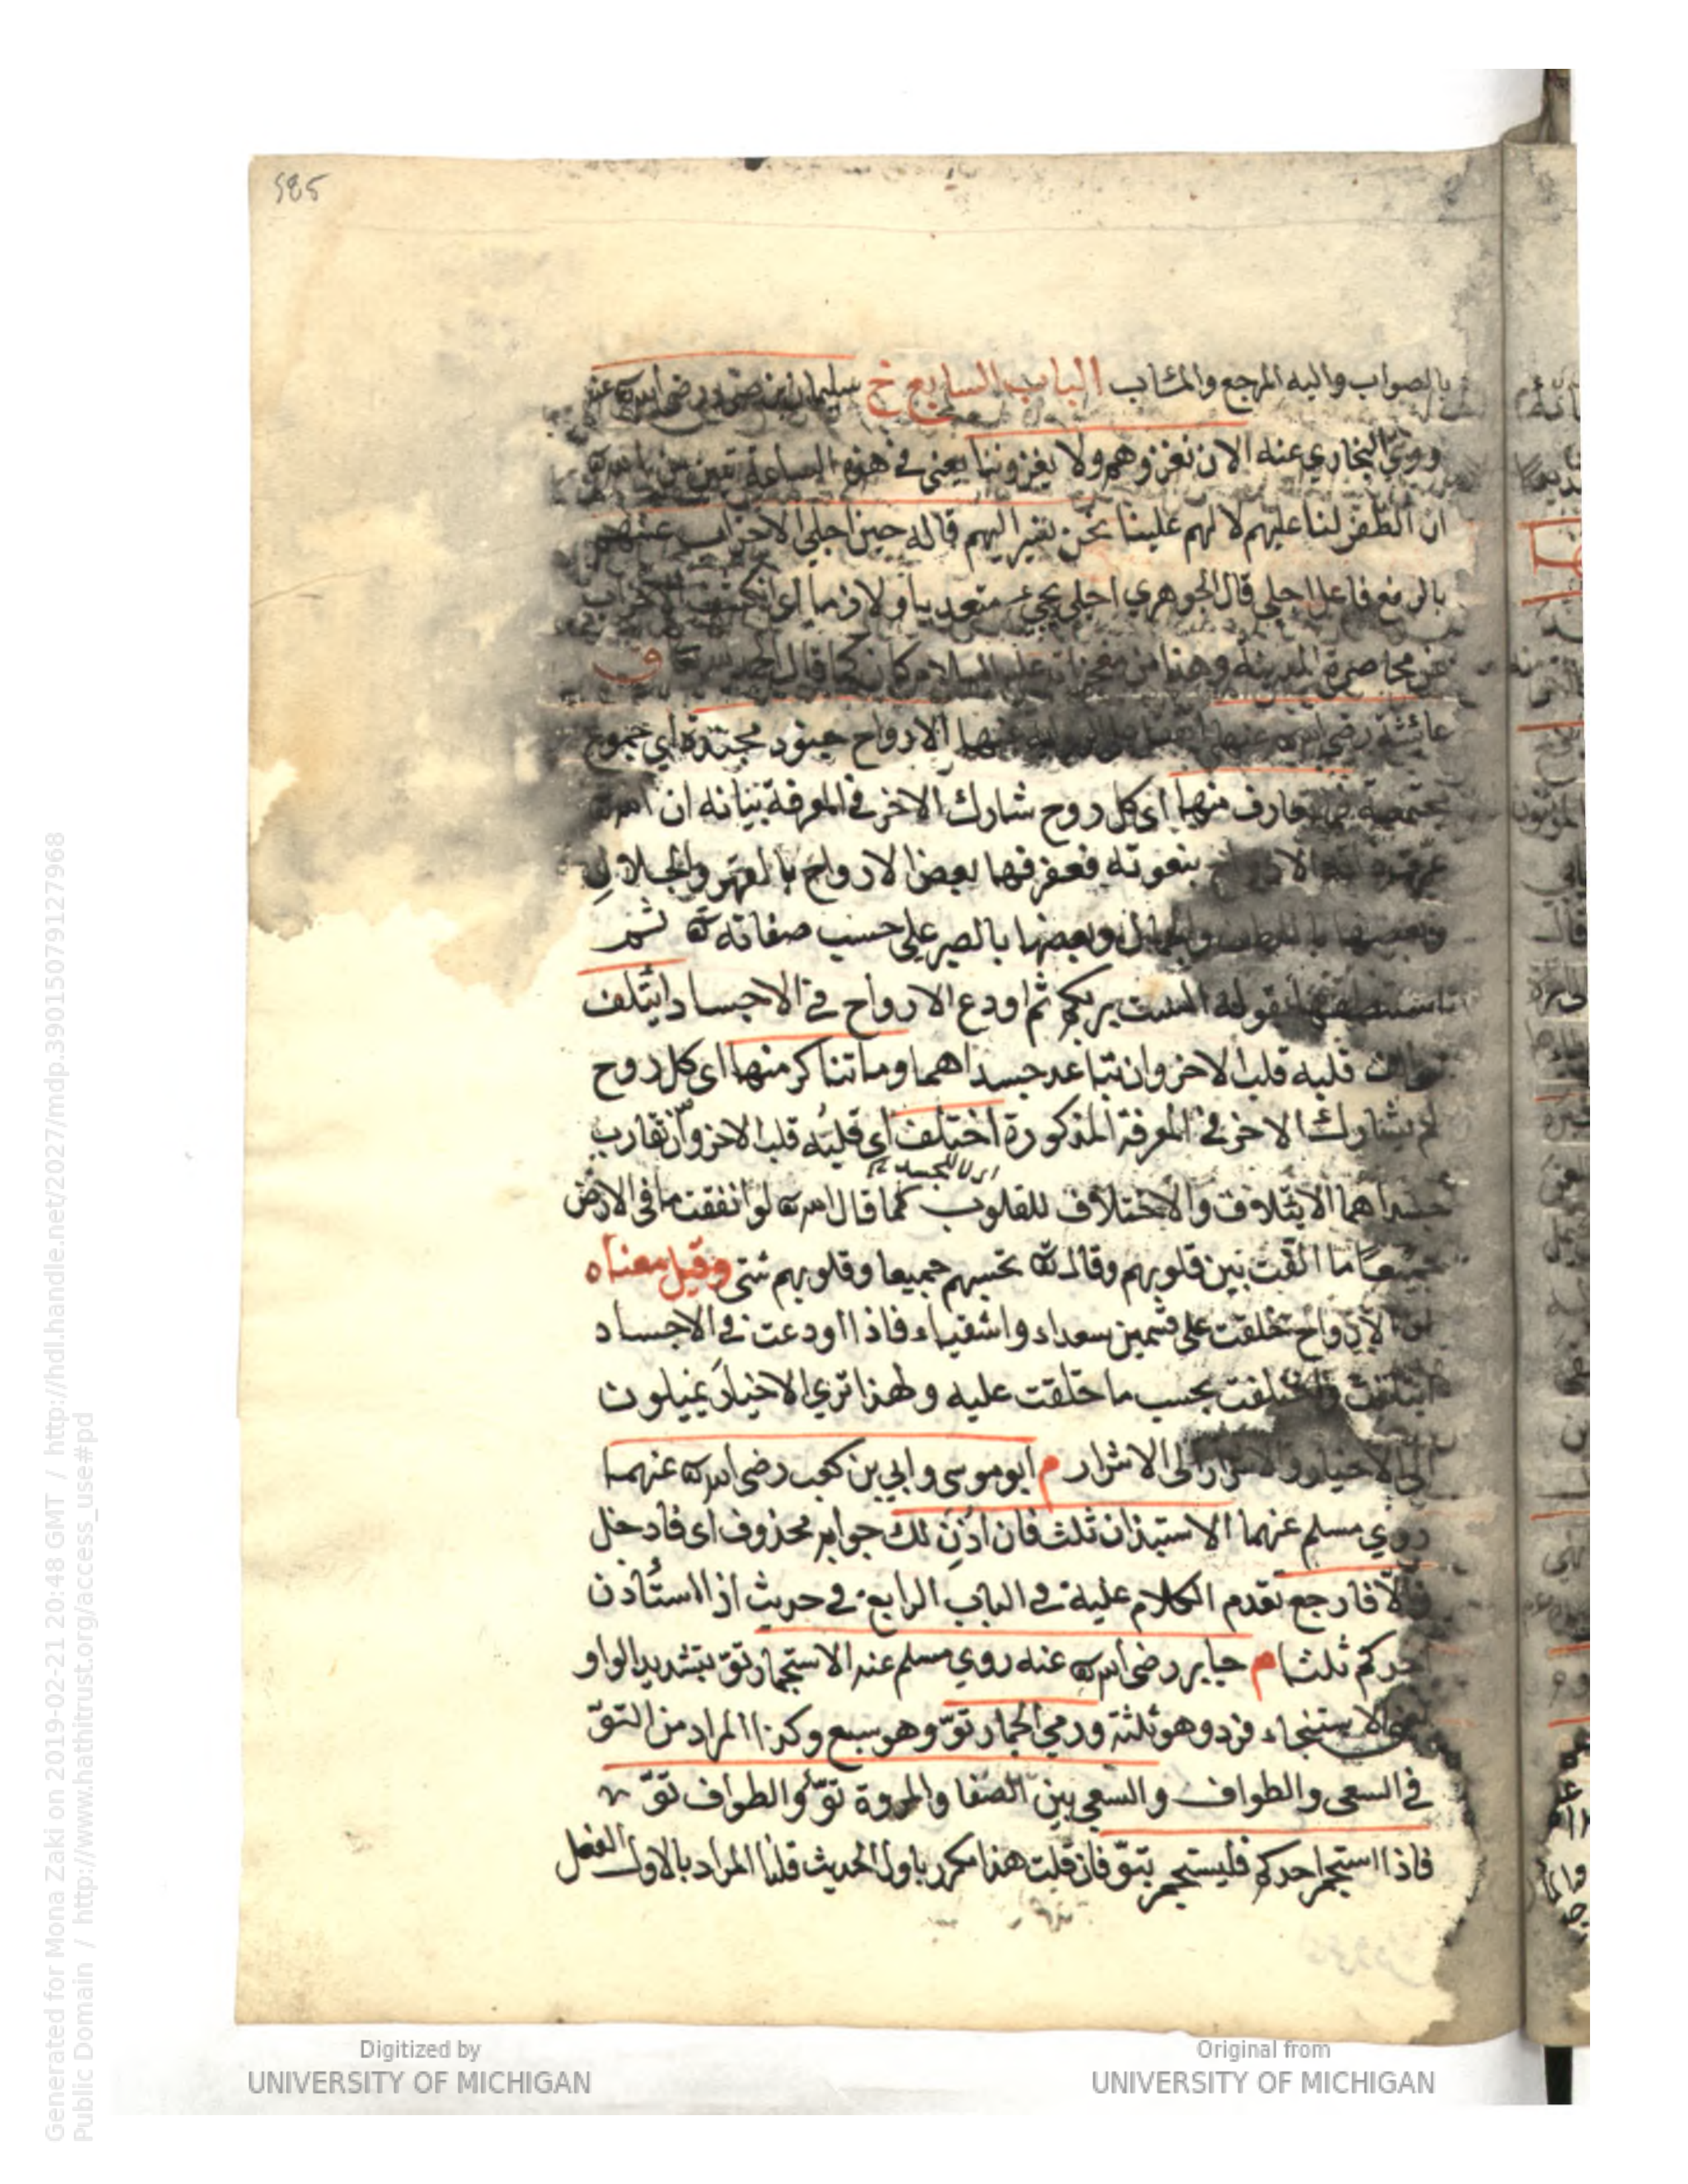 585
بالصواب واليه المرجع والمئاب الباب السابع خ سليمان بن صرد رضى الله عنه
روى البخاري عنه الان نغزوهم ولا يغزوننا يعنى فى هذه الساعة تبين من
ان الظفر لنا عليهم لا لهم علينا نحن نسير اليهم قاله حين اجلى الاحزاب عنه
بالرفع فاعل اجلى قال الجوهري اجلى يجئ متعديا ولازما اى الاحزاب
عن محاصرة المدينة وهذا من معجزاته عليه السلام كان كما قال ق
عائشة رضى الله عنها الارواح جنود مجندة اى جموع
مجتمعة فما تعارف منها اى كل روح شارك الاخر فى المعرفة بيانه ان الله
الارواح بنعوته فعرفها بعض الارواح بالقهر والجلال
وبعضها باللطف والجمال وبعضها بالصبر على حسب صفاته ثم
استنطقها بقوله الست بربكم ثم اودع الارواح فى الاجساد ايتلف
قلبه قلب الاخر وان تباعد جسداهما وما تناكر منها اى كل روح
لم يشارك الاخر فى المعرفة المذكورة اختلف اى قلبه قلب الاخر وان تقارب
جسداهما الايتلاف والاختلاف للقلوب كما قال الله لو انفقت ما فى الارض
جميعا ما الفت بين قلوبهم وقال تحسبهم جميعا وقلوبهم شتى وقيل معناه
ان الارواح خلقت على قسمين سعداء واشقياء فاذا اودعت فى الاجساد
ايتلفت واختلفت بحسب ما خلقت عليه ولهذا تري الاخيار يميلون
الى الاخيار والاشرار الى الاشرار م ابو موسى وابي بن كعب رضى الله عنهما
روي مسلم عنهما الاستيذان ثلث فان اذن لك جوابه محذوف اى فادخل
والا فارجع تقدم الكلام عليه فى الباب الرابع فى حديث اذا استأذن
احدكم ثلثا م جابر رضى الله عنه روي مسلم عنه الاستجمار توّ بتشديد الواو
الاستنجاء فرد وهو ثلثة ورمي الجمار توّ وهو سبع وكذا المراد من التوّ
فى السعى والطواف والسعي بين الصفا والمروة توّ والطواف توّ
فاذا استجمر احدكم فليستجمر بتوّ فان قلت هذا مكرر باول الحديث قلنا المراد بالاول الفعل
Digitized by
UNIVERSITY OF MICHIGAN
Original from
UNIVERSITY OF MICHIGAN
Generated for Mona Zaki on 2019-02-21 20:48 GMT / http://hdl.handle.net/2027/mdp.39015079127968
Public Domain / http://www.hathitrust.org/access_use#pd